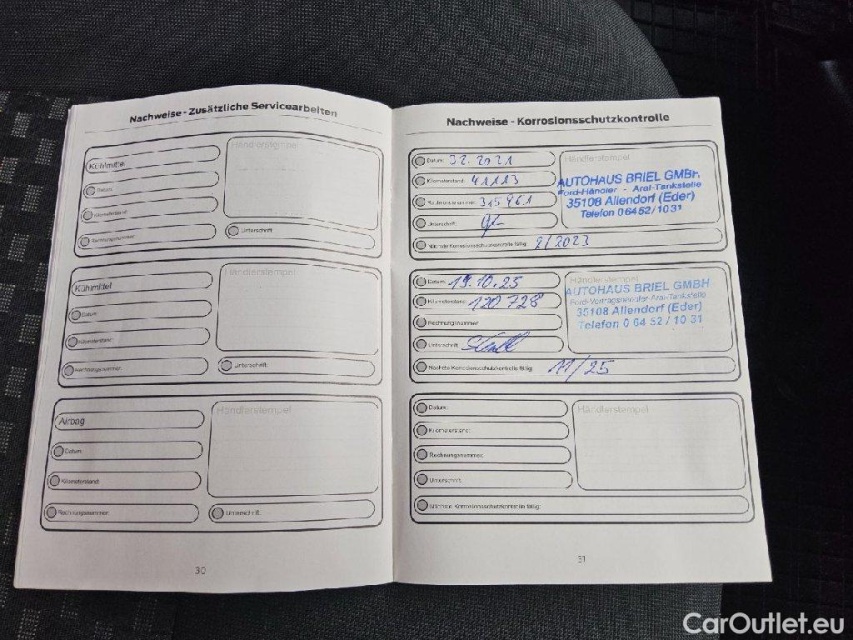 Nachweise - Zusätzliche Servicearbeiten
Kühlmittel
Händlerstempel
Datum:
Kilometerstand:
Rechnungsnummer:
Unterschrift:
Kühlmittel
Händlerstempel
Datum:
Kilometerstand:
Rechnungsnummer:
Unterschrift:
Airbag
Händlerstempel
Datum:
Kilometerstand:
Rechnungsnummer:
Unterschrift:
30
Nachweise - Korrosionsschutzkontrolle
Datum: 02.2021
Händlerstempel
Kilometerstand: 41113
Rechnungsnummer: 315961
Unterschrift:
AUTOHAUS BRIEL GMBH.
Ford-Händler - Aral-Tankstelle
35108 Allendorf (Eder)
Telefon 06452/1031
Nächste Korrosionsschutzkontrolle fällig: 2/2023
Datum: 19.10.25
Händlerstempel
Kilometerstand: 120 728
Rechnungsnummer:
Unterschrift:
AUTOHAUS BRIEL GMBH
Ford-Vertragshändler Aral-Tankstelle
35108 Allendorf (Eder)
Telefon 0 64 52 / 10 31
Nächste Korrosionsschutzkontrolle fällig: 11/25
Datum:
Händlerstempel
Kilometerstand:
Rechnungsnummer:
Unterschrift:
Nächste Korrosionsschutzkontrolle fällig:
31
CarOutlet.eu